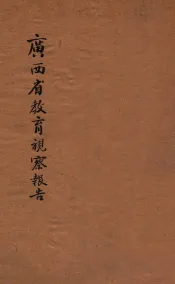 廣西省教育視察報告